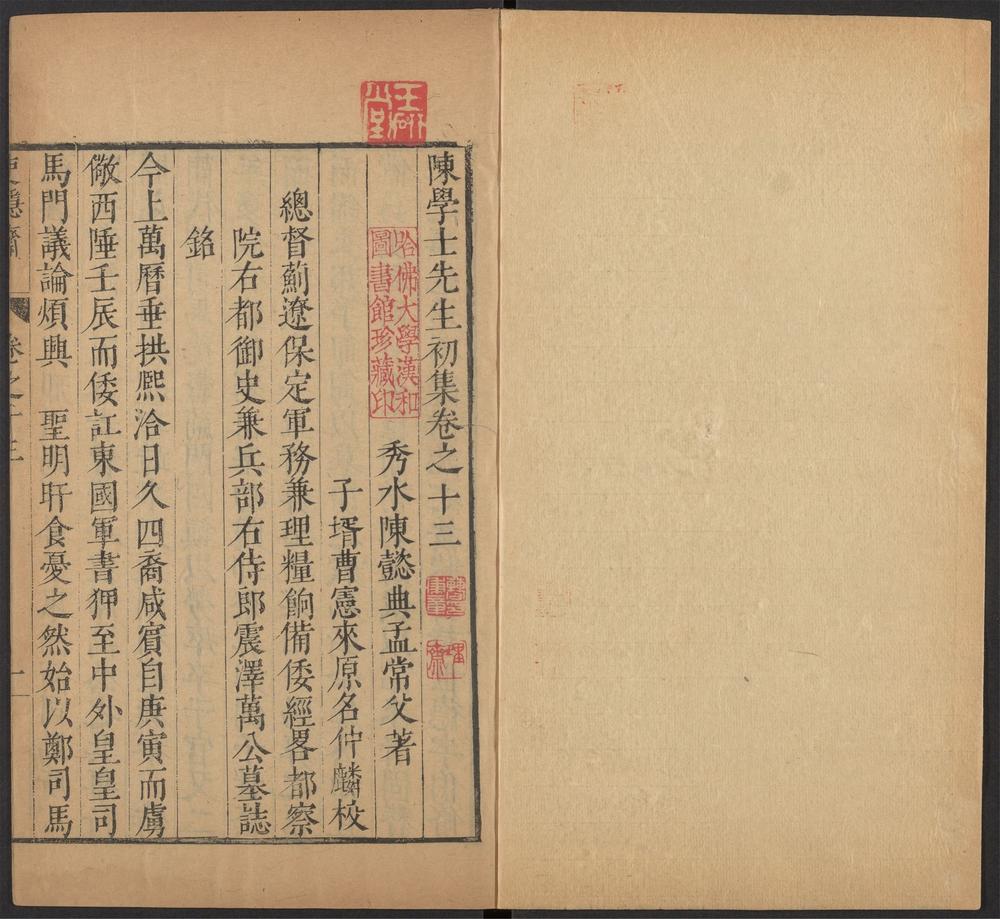 陳學士先生初集卷之十三
秀水陳懿典孟常父著
子壻曹憲來原名仲麟校
總督薊遼保定軍務兼理糧餉備倭經畧都察
院右都御史兼兵部右侍郎震澤萬公墓誌
銘
今上萬曆垂拱熈洽日久四裔咸賓自庚寅而虜
儆西陲壬辰而倭訌東國軍書狎至中外皇皇司
馬門議論煩興 聖明旰食憂之然始以鄭司馬
卷之十三
一
哈佛大學漢和
圖書館珍藏印